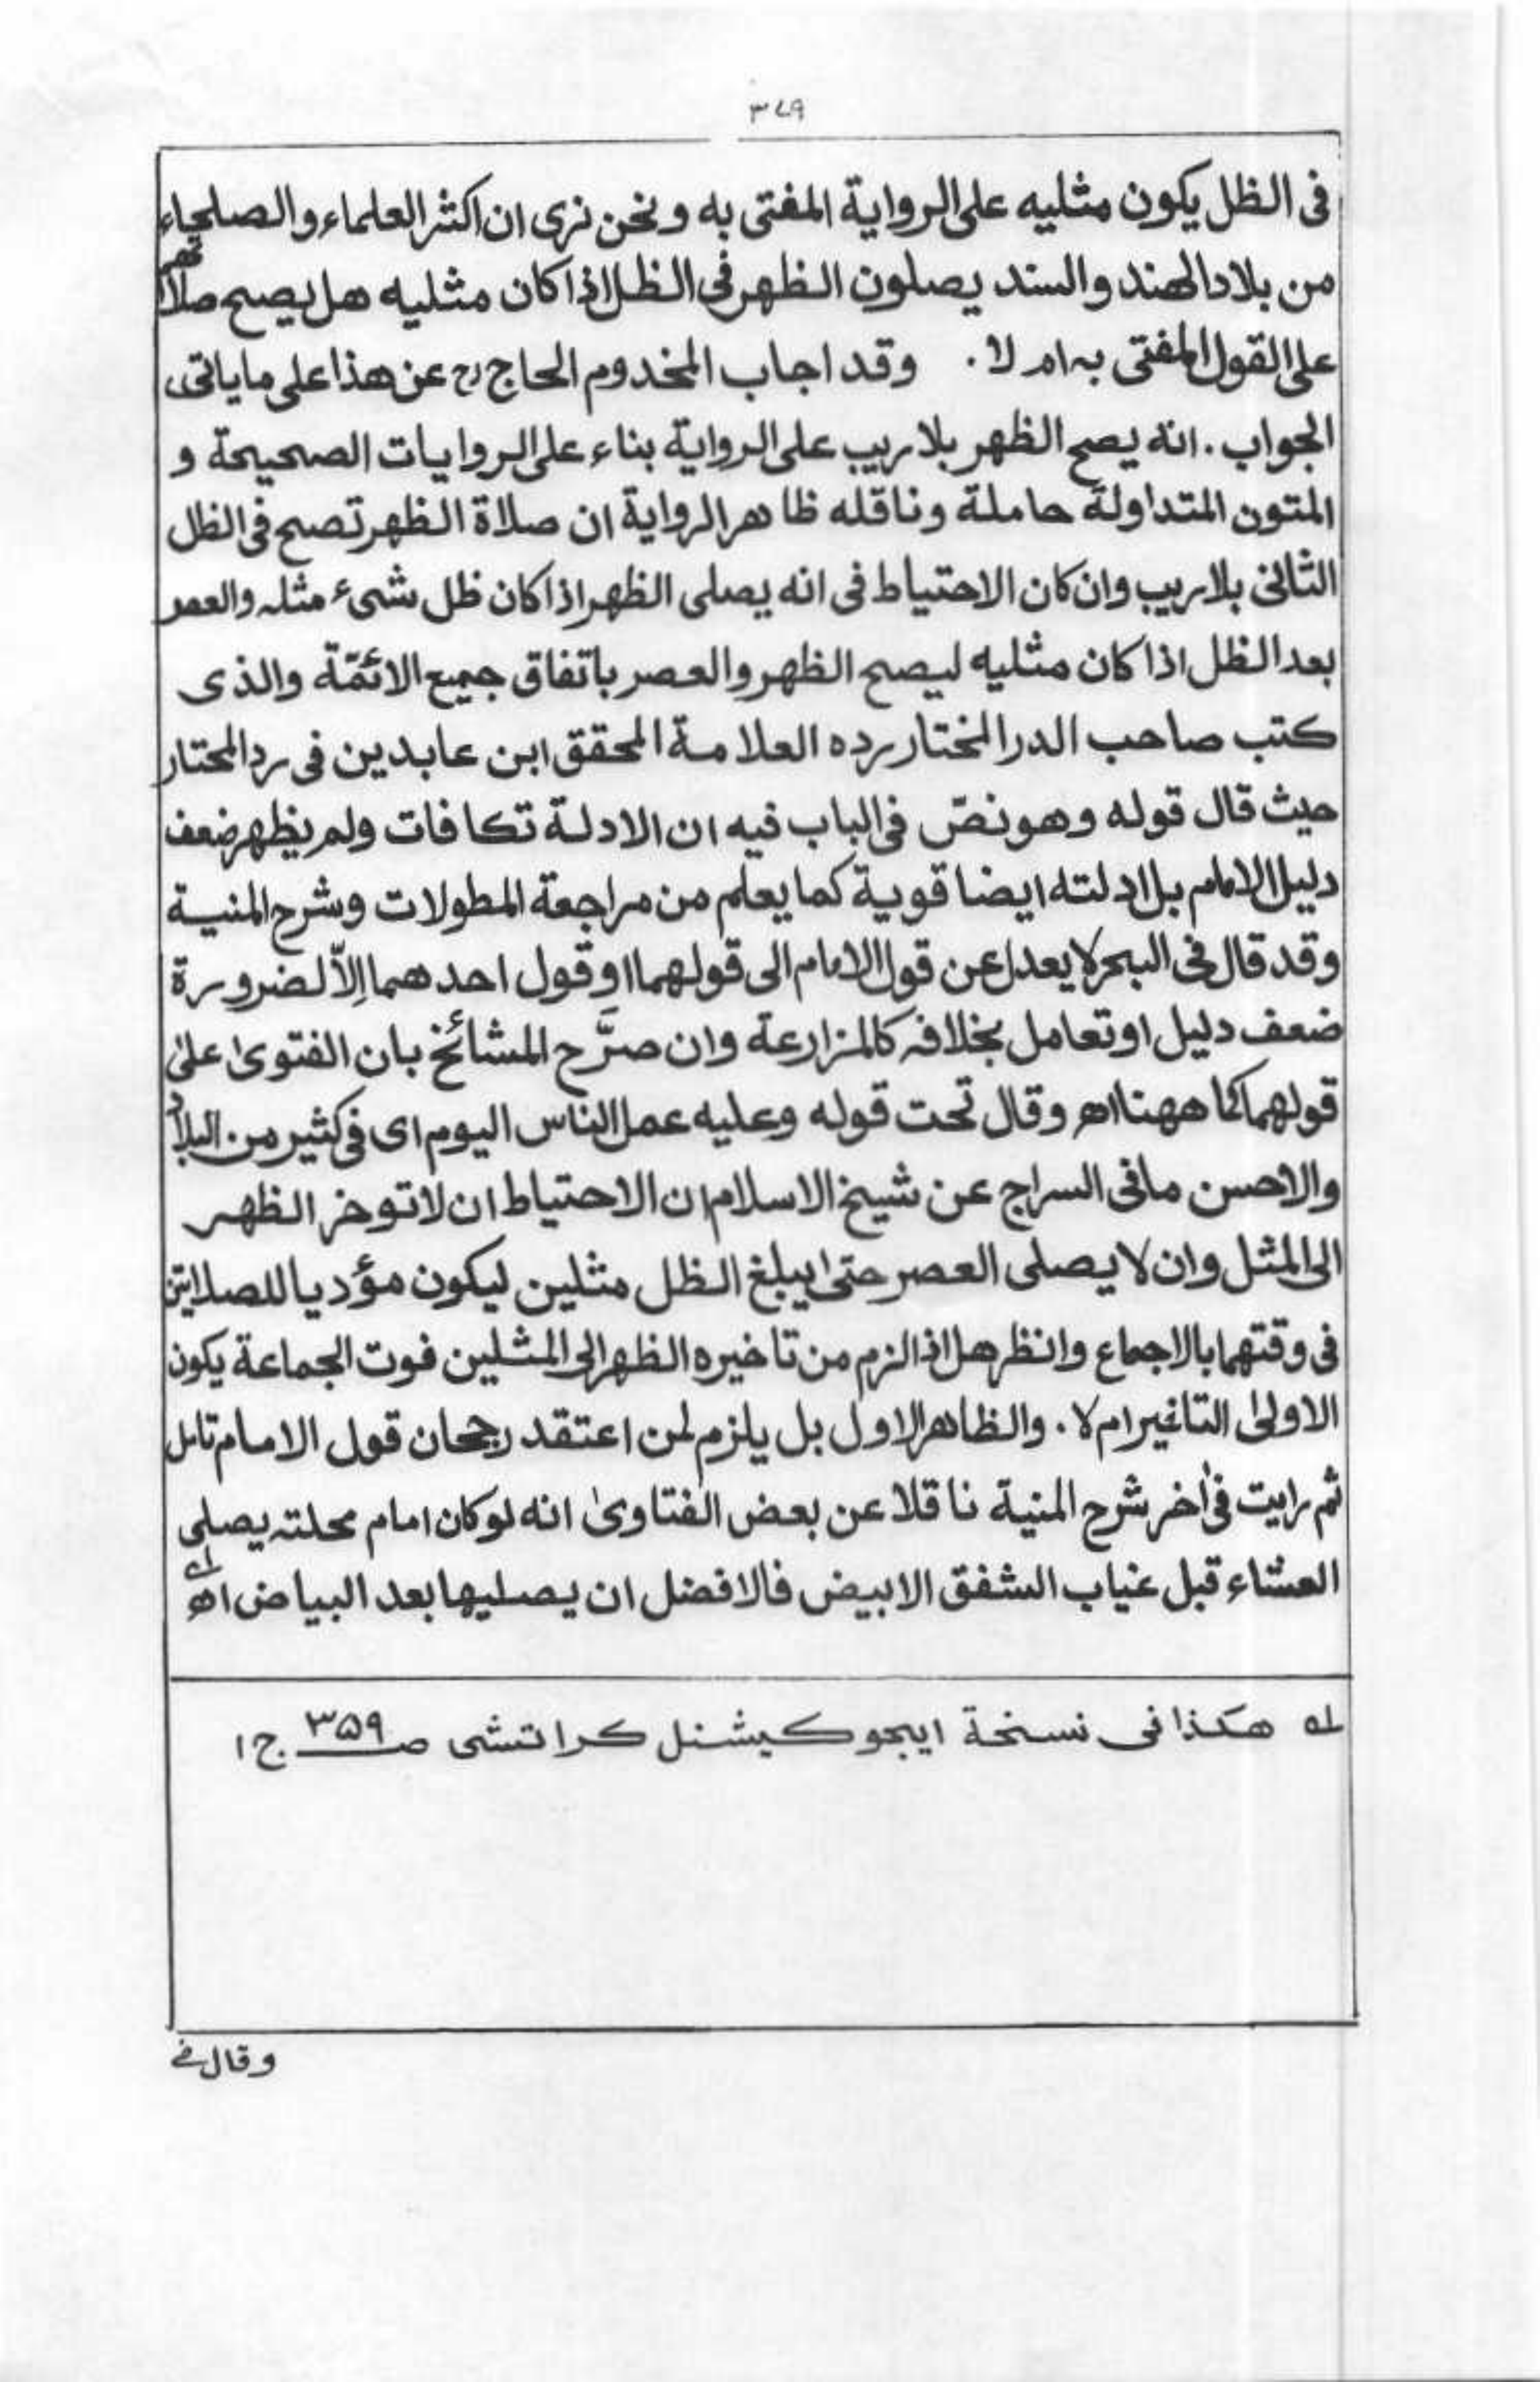 ٣٧٩
فى الظل يكون مثليه على الرواية المفتى به ونحن نرى ان اكثر العلماء والصلحاء
من بلاد الهند والسند يصلون الظهر فى الظل اذا كان مثليه هل يصح صلاتهم
على القول المفتى به ام لا. وقد اجاب المخدوم الحاج رح عن هذا على ماياتى
الجواب. انه يصح الظهر بلاريب على الرواية بناء على الروايات الصحيحة و
المتون المتداولة حاملة وناقله ظاهر الرواية ان صلاة الظهر تصح فى الظل
الثانى بلاريب وان كان الاحتياط فى انه يصلى الظهر اذا كان ظل شىء مثله والعصر
بعد الظل اذا كان مثليه ليصح الظهر والعصر باتفاق جميع الائمّة والذى
كتب صاحب الدر المختار رده العلامة المحقق ابن عابدين فى رد المحتار
حيث قال قوله وهو نصّ فى الباب فيه ان الادلة تكافات ولم يظهر ضعف
دليل الامام بل ادلته ايضا قوية كما يعلم من مراجعة المطولات وشرح المنية
وقد قال فى البحر لا يعدل عن قول الامام الى قولهما او قول احدهما الّا لضرورة
ضعف دليل او تعامل بخلافه كالمزارعة وان صرَّح المشائخ بان الفتوىٰ علىٰ
قولهما كما ههنا اهـ وقال تحت قوله وعليه عمل الناس اليوم اى فى كثير من البلاد
والاحسن مافى السراج عن شيخ الاسلام ان الاحتياط ان لا توخر الظهر
الى المثل وان لا يصلى العصر حتىٰ يبلغ الظل مثلين ليكون مؤديا للصلاتين
فى وقتهما بالاجماع وانظر هل اذا لزم من تاخيره الظهر الى المثلين فوت الجماعة يكون
الاولىٰ التاخير ام لا. والظاهر الاول بل يلزم لمن اعتقد رجحان قول الامام تامل
ثم رايت فى اٰخر شرح المنية ناقلا عن بعض الفتاوىٰ انه لو كان امام محلته يصلى
العشاء قبل غياب الشفق الابيض فالافضل ان يصليها بعد البياض اهـ ؎١
؎١ هكذا فى نسخة ايجوكيشنل كراتشى صـ ٣٥٩ ج ١
وقال فى